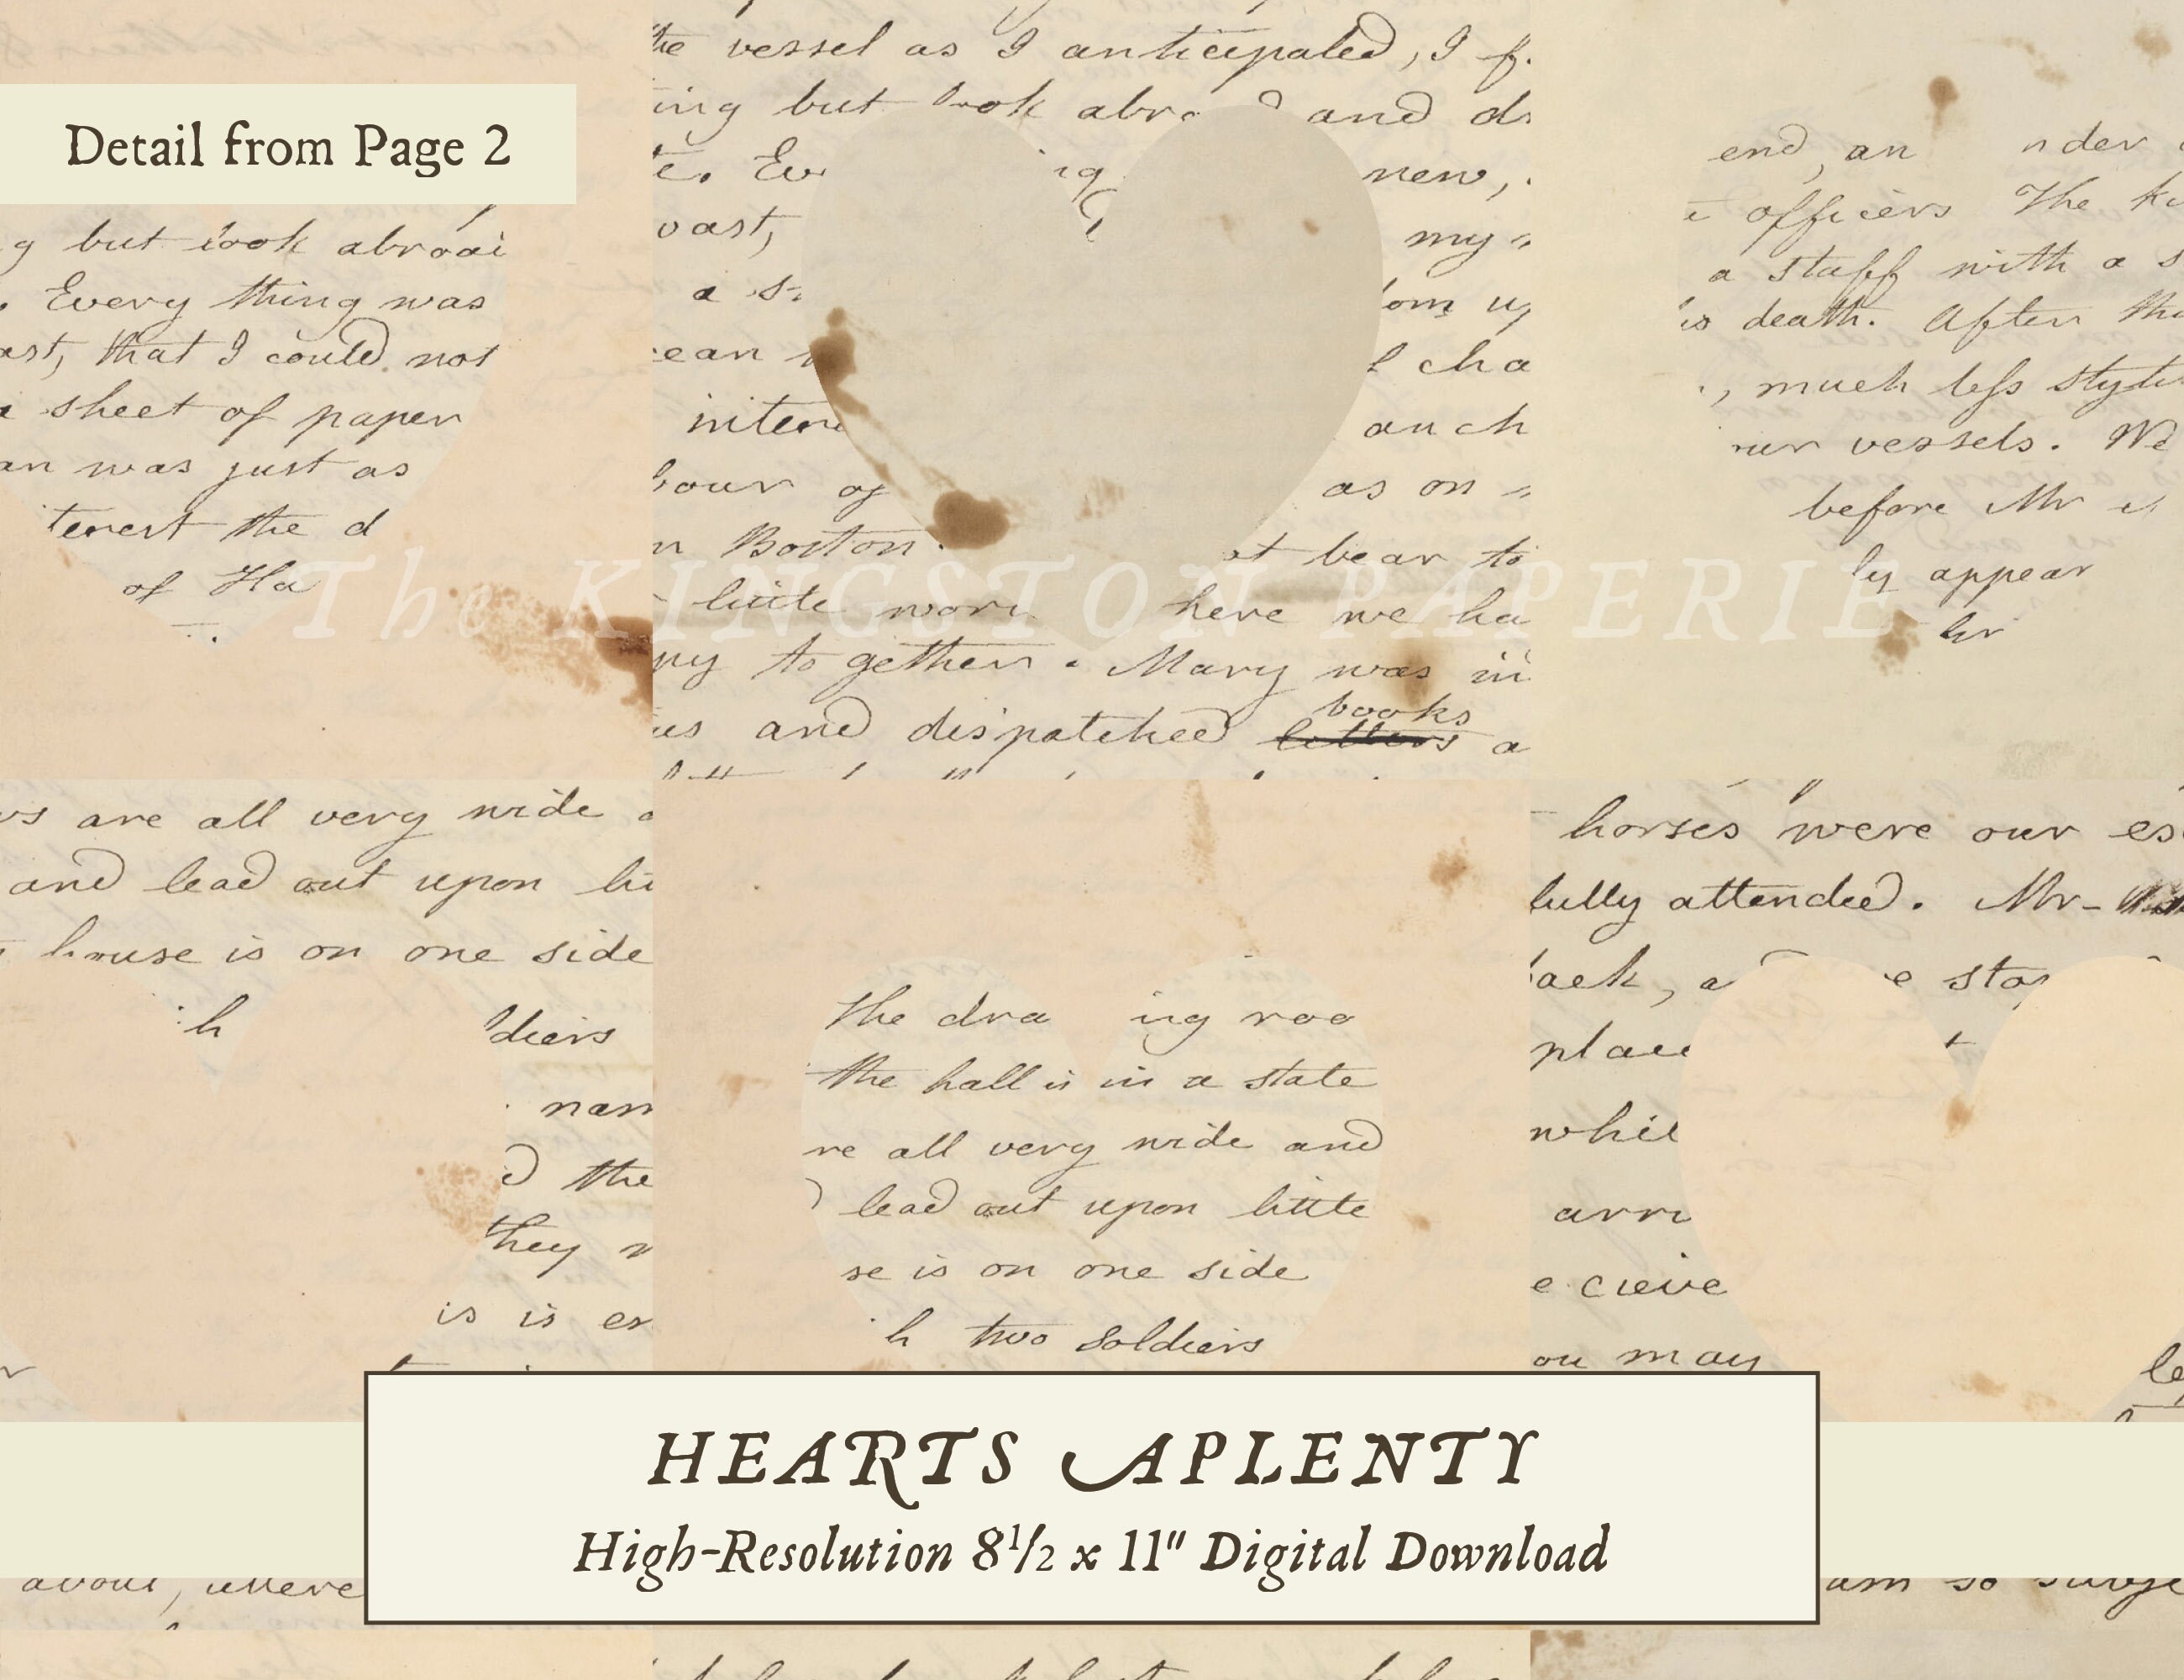 Detail from Page 2
g but look abroad
Every thing was
ast, that I could not
sheet of paper
an was just as
terest the d
of Ha
the vessel as I anticipated, I f
ing but look abro and
te. Ev ing new,
oast, my
a s
om up
ean l cha
inter an ch
hour of as on
in Boston. ot bear to
little wor here we ha
py together. Mary was in
books
us and dispatched letters a
end, an nder
officers The k
a staff with a s
is death. After the
, much less style
our vessels. We
before Mr
ly appear
hr
The KINGSTON PAPERIE
ws are all very wide a
and lead out upon li
house is on one side
h ldiers
nam
d the
they
is is
The dra ing roo
the hall is in a state
re all very wide and
lead out upon little
se is on one side
h two soldiers
horses were our es
fully attended. Mr-
back, a e stop
place
whil
arri
ecieve
ou may
le
HEARTS APLENTY
High-Resolution 8½ x 11" Digital Download
about, where
am so